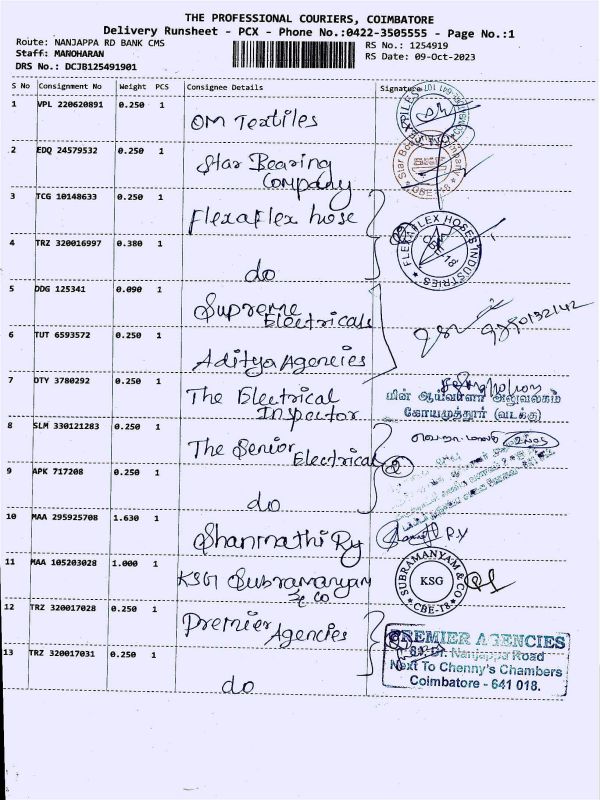 THE PROFESSIONAL COURIERS, COIMBATORE
Delivery Runsheet - PCX - Phone No.:0422-3505555 - Page No.:1
Route: NANJAPPA RD BANK CMS
RS No.: 1254919
Staff: MANOHARAN
RS Date: 09-Oct-2023
DRS No.: DCJB125491901
S No Consignment No Weight PCS Consignee Details Signature
1 VPL 220620891 0.250 1 OM Textiles
2 EDQ 24579532 0.250 1 Star Bearing
Company
3 TCG 10148633 0.250 1 Flexaflex hose
FLEXAFLEX HOSES INDUSTRIES
4 TRZ 320016997 0.380 1 do
5 DDG 125341 0.090 1 Supreme
Electricals
6 TUT 6593572 0.250 1 Aditya Agencies
7 DTY 3780292 0.250 1 The Electrical
Inspector
மின் ஆய்வாளர் அலுவலகம்
கோயமுத்தூர் (வடக்கு)
8 SLM 330121283 0.250 1 The Senior
Electrical
9 APK 717208 0.250 1 do
10 MAA 295925708 1.630 1 Shanmathi Ry
P.Y
11 MAA 105203028 1.000 1 KSG Subramanyam
& Co
SUBRAMANYAM & CO
KSG
CBE-18
12 TRZ 320017028 0.250 1 Premier
Agencies
PREMIER AGENCIES
Nanjappa Road
Next To Chenny's Chambers
Coimbatore - 641 018.
13 TRZ 320017031 0.250 1 do